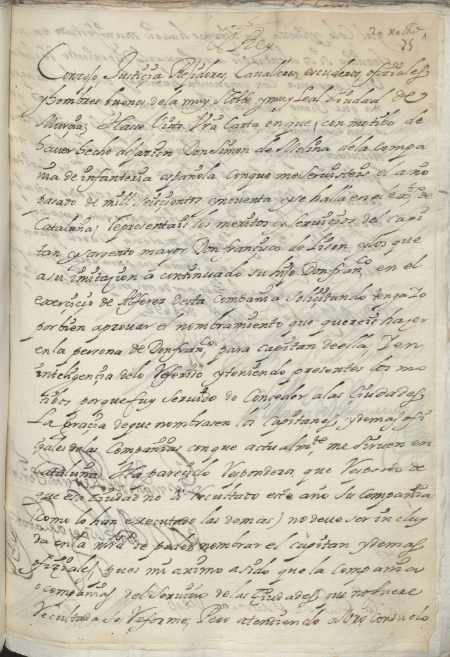 El Rey
75
Concejo Justicia Regidores Cavalleros escuderos oficiales
y hombres buenos de la muy Noble y muy Leal Ciudad de
Murcia, Havse Visto Vra Carta en que, con motivo de
haver hecho dejacion Don Simon de Molina de la Compa
nia de infanteria española Conque me servisteis el año
pasado de mill Seiscientos y noventa y se halla en el exto de
Cataluña, representais los meritos y Servicios del Capi
tan y sarxento mayor Don Francisco de y los que
a su imitacion a continuado su hijo Don Franco en el
exercicio de Alferez desta Compañia Solicitando tenga Yo
por bien aprovar el nombramiento que quereis hazer
en la persona de Don Franco para capitan de ella, Y en
inteligencia de lo referido y teniendo presentes los mo
tivos porque fuy Servido de Conceder a las Ciudades
la gracia de que nombrasen los Capitanes y demas ofi
ziales de las Compañias con que actualmte me sirven en
Cataluña. Ha parecido responderos que respecto de
que esa Ciudad no a recluttado este año Su Compañia
(como lo han executado las demas) no deve ser inclui
da en la de poder nombrar el Capitan y demas
ofiziales, pues mi animo a sido que la Compañia
o Compañias del Servicio de las Ciudades que no fuere
reclutada se reforme, Pero atendiendo a Vro Consuelo